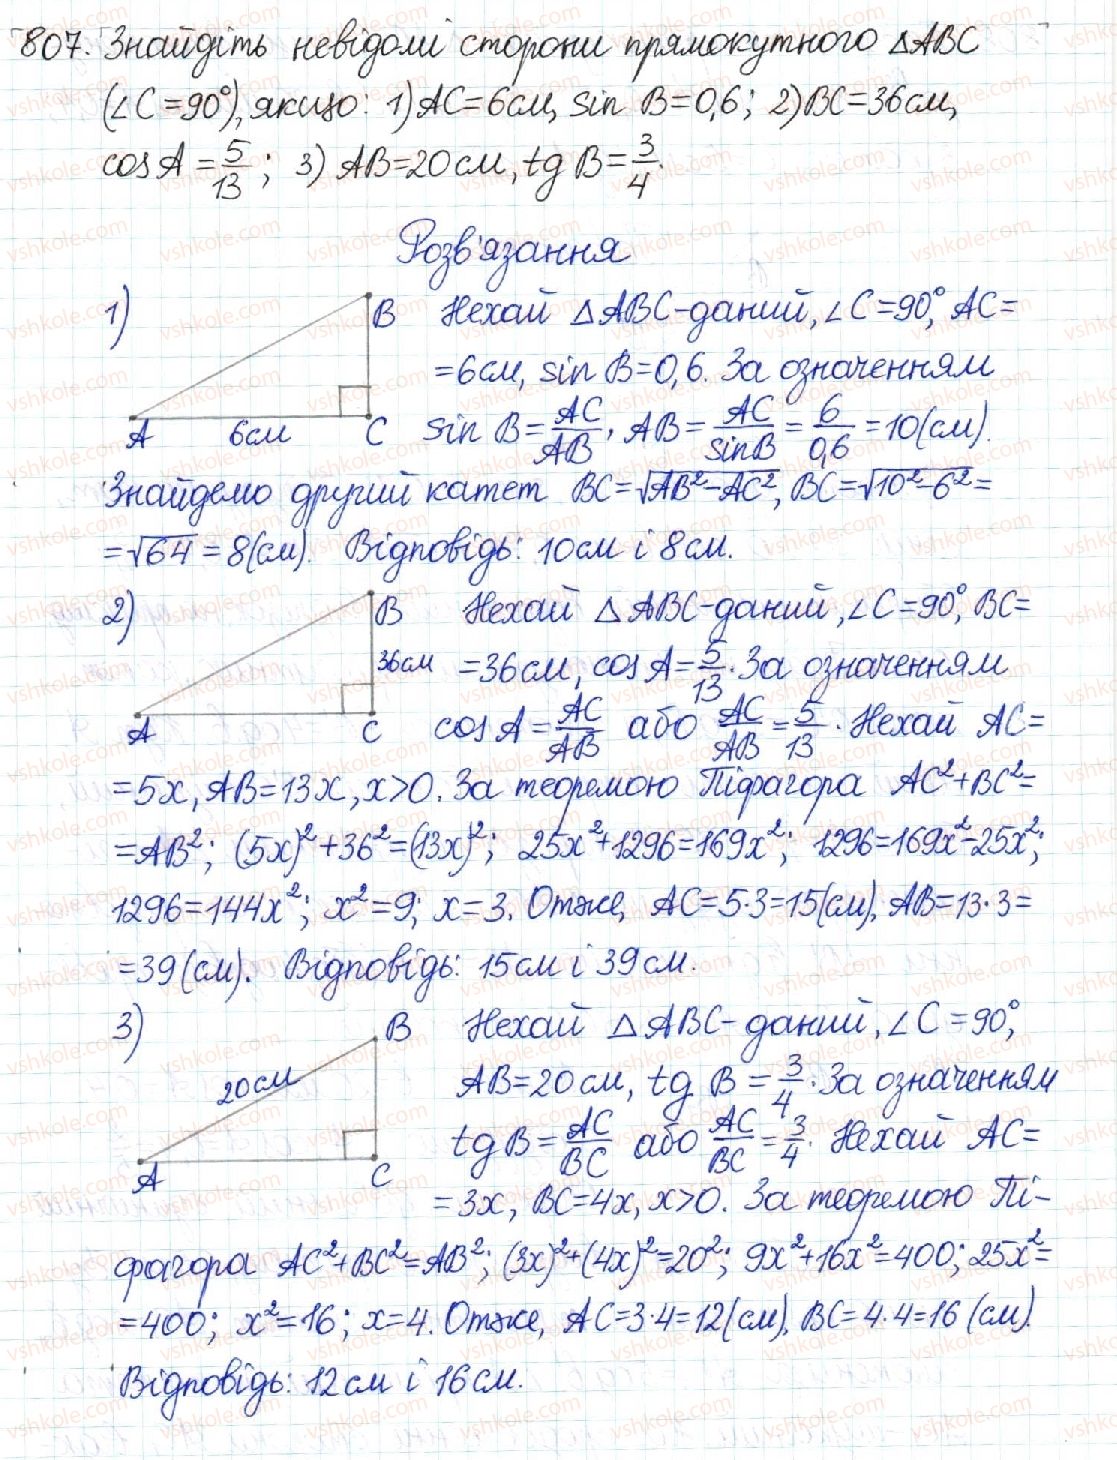 807. Знайдіть невідомі сторони прямокутного △ABC
(∠C=90°), якщо: 1) AC=6см, sin B=0,6; 2) BC=36см,
cos A=5/13; 3) AB=20см, tg B=3/4.
Розв'язання
1)
B
A
6см
C
Нехай △ABC-даний, ∠C=90°, AC=
=6см, sin B=0,6. За означенням
sin B=AC/AB, AB=AC/sinB=6/0,6=10(см).
Знайдемо другий катет BC=√AB²-AC², BC=√10²-6²=
=√64=8(см). Відповідь: 10см і 8см.
2)
B
36см
A
C
Нехай △ABC-даний, ∠C=90°, BC=
=36см, cos A=5/13. За означенням
cos A=AC/AB або AC/AB=5/13. Нехай AC=
=5x, AB=13x, x>0. За теоремою Піфагора AC²+BC²=
=AB²; (5x)²+36²=(13x)²; 25x²+1296=169x²; 1296=169x²-25x²;
1296=144x²; x²=9; x=3. Отже, AC=5·3=15(см), AB=13·3=
=39(см). Відповідь: 15см і 39см.
3)
B
20см
A
C
Нехай △ABC-даний, ∠C=90°,
AB=20см, tg B=3/4. За означенням
tg B=AC/BC або AC/BC=3/4. Нехай AC=
=3x, BC=4x, x>0. За теоремою Пі-
фагора AC²+BC²=AB²; (3x)²+(4x)²=20²; 9x²+16x²=400; 25x²=
=400; x²=16; x=4. Отже, AC=3·4=12(см), BC=4·4=16(см).
Відповідь: 12см і 16см.
vshkole.com